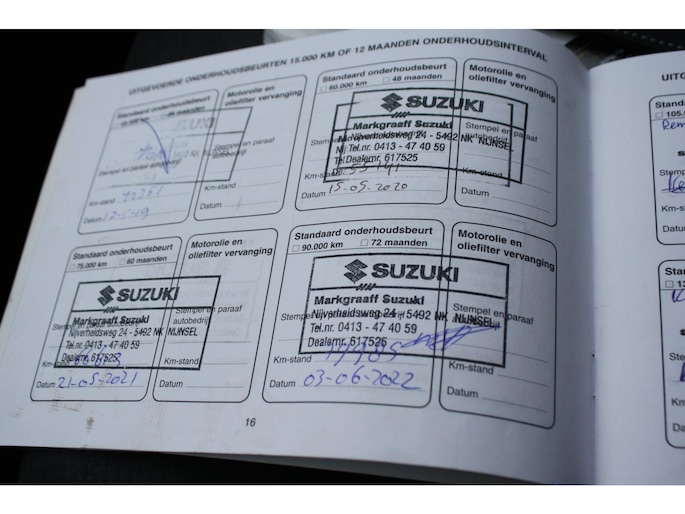 UITGEVOERDE ONDERHOUDSBEURTEN 15.000 KM OF 12 MAANDEN ONDERHOUDSINTERVAL
Standaard onderhoudsbeurt
maanden
Stempel en paraaf autobedrijf
Km-stand
Datum
Motorolie en
oliefilter vervanging
Stempel en paraaf
autobedrijf
Km-stand
Datum
Standaard onderhoudsbeurt
□ 60.000 km □ 48 maanden
SUZUKI
Markgraaff Suzuki
Nijverheidsweg 24 - 5492 NK NIJNSEL
Tel.nr. 0413 - 47 40 59
Dealernr. 617525
Datum 15-05-2020
Motorolie en
oliefilter vervanging
Stempel en paraaf
autobedrijf
Km-stand
Datum
Standaard onderhoudsbeurt
□ 75.000 km □ 60 maanden
SUZUKI
Markgraaff Suzuki
Nijverheidsweg 24 - 5492 NK NIJNSEL
Tel.nr. 0413 - 47 40 59
Dealernr. 617525
Km-stand
Datum 21-05-2021
Motorolie en
oliefilter vervanging
Stempel en paraaf
autobedrijf
Km-stand
Datum
Standaard onderhoudsbeurt
□ 90.000 km □ 72 maanden
SUZUKI
Markgraaff Suzuki
Nijverheidsweg 24 - 5492 NK NIJNSEL
Tel.nr. 0413 - 47 40 59
Dealernr. 617525
Km-stand
Datum 03-06-2022
Motorolie en
oliefilter vervanging
Stempel en paraaf
autobedrijf
Km-stand
Datum
16